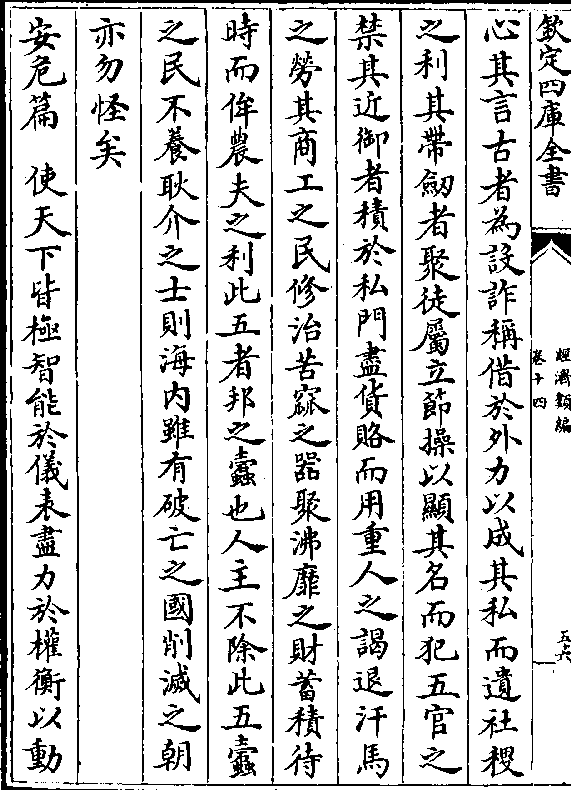 欽定四庫全書
經濟類編
卷十四
五六
心其言古者為設詐稱借於外力以成其私而遺社稷
之利其帶劒者聚徒屬立節操以顯其名而犯五官之
禁其近御者積於私門盡貨賂而用重人之謁退汗馬
之勞其商工之民修治苦窳之器聚沸靡之財蓄積待
時而侔農夫之利此五者邦之蠧也人主不除此五蠧
之民不養耿介之士則海内雖有破亡之國削滅之朝
亦勿怪矣
安危篇　使天下皆極智能於儀表盡力於權衡以動